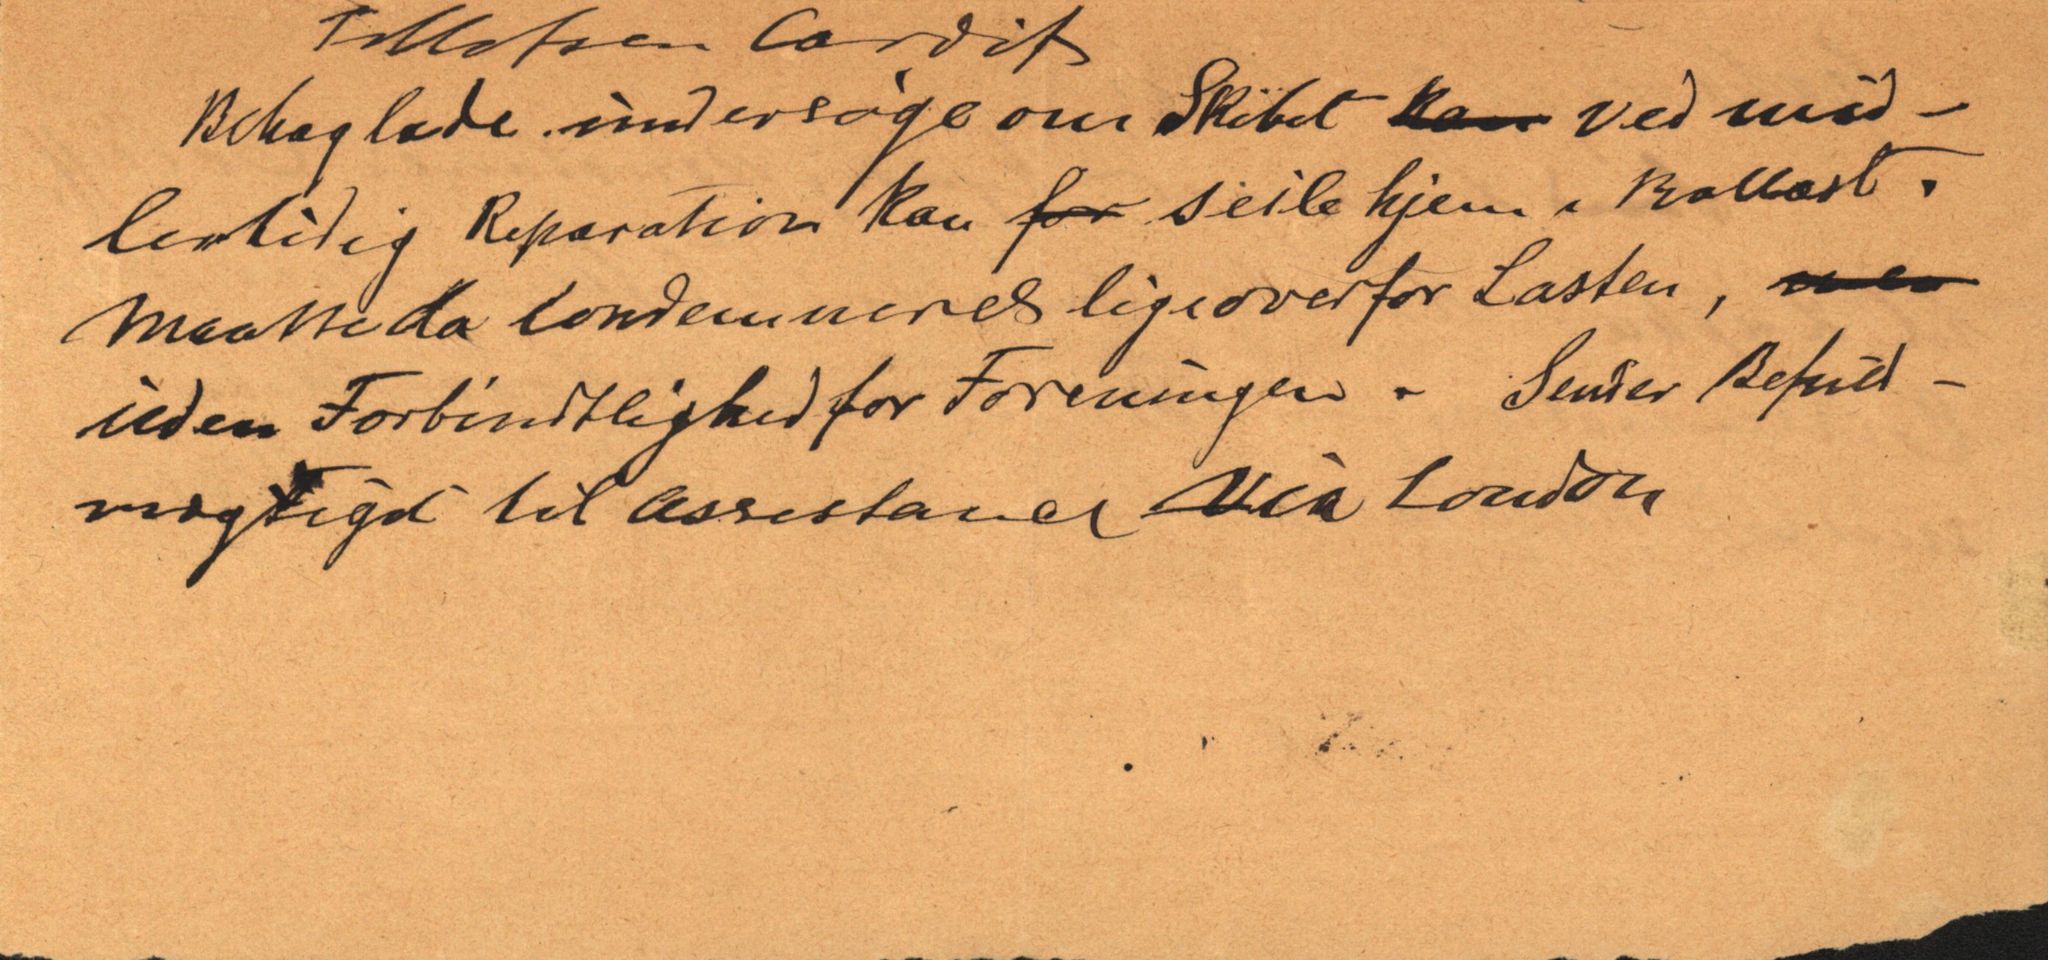 Tellefsen Cardiff
Behag lade undersøge om Skibet ~~kan~~ ved mid-
lertidig Reparation kan ~~for~~ seile hjem i Ballast.
Maatte da kondemneres ligeoverfor Lasten, ~~men~~
uden Forbindtlighed for Foreningen. Sender Befuld-
mægtiget til Assistance Via London